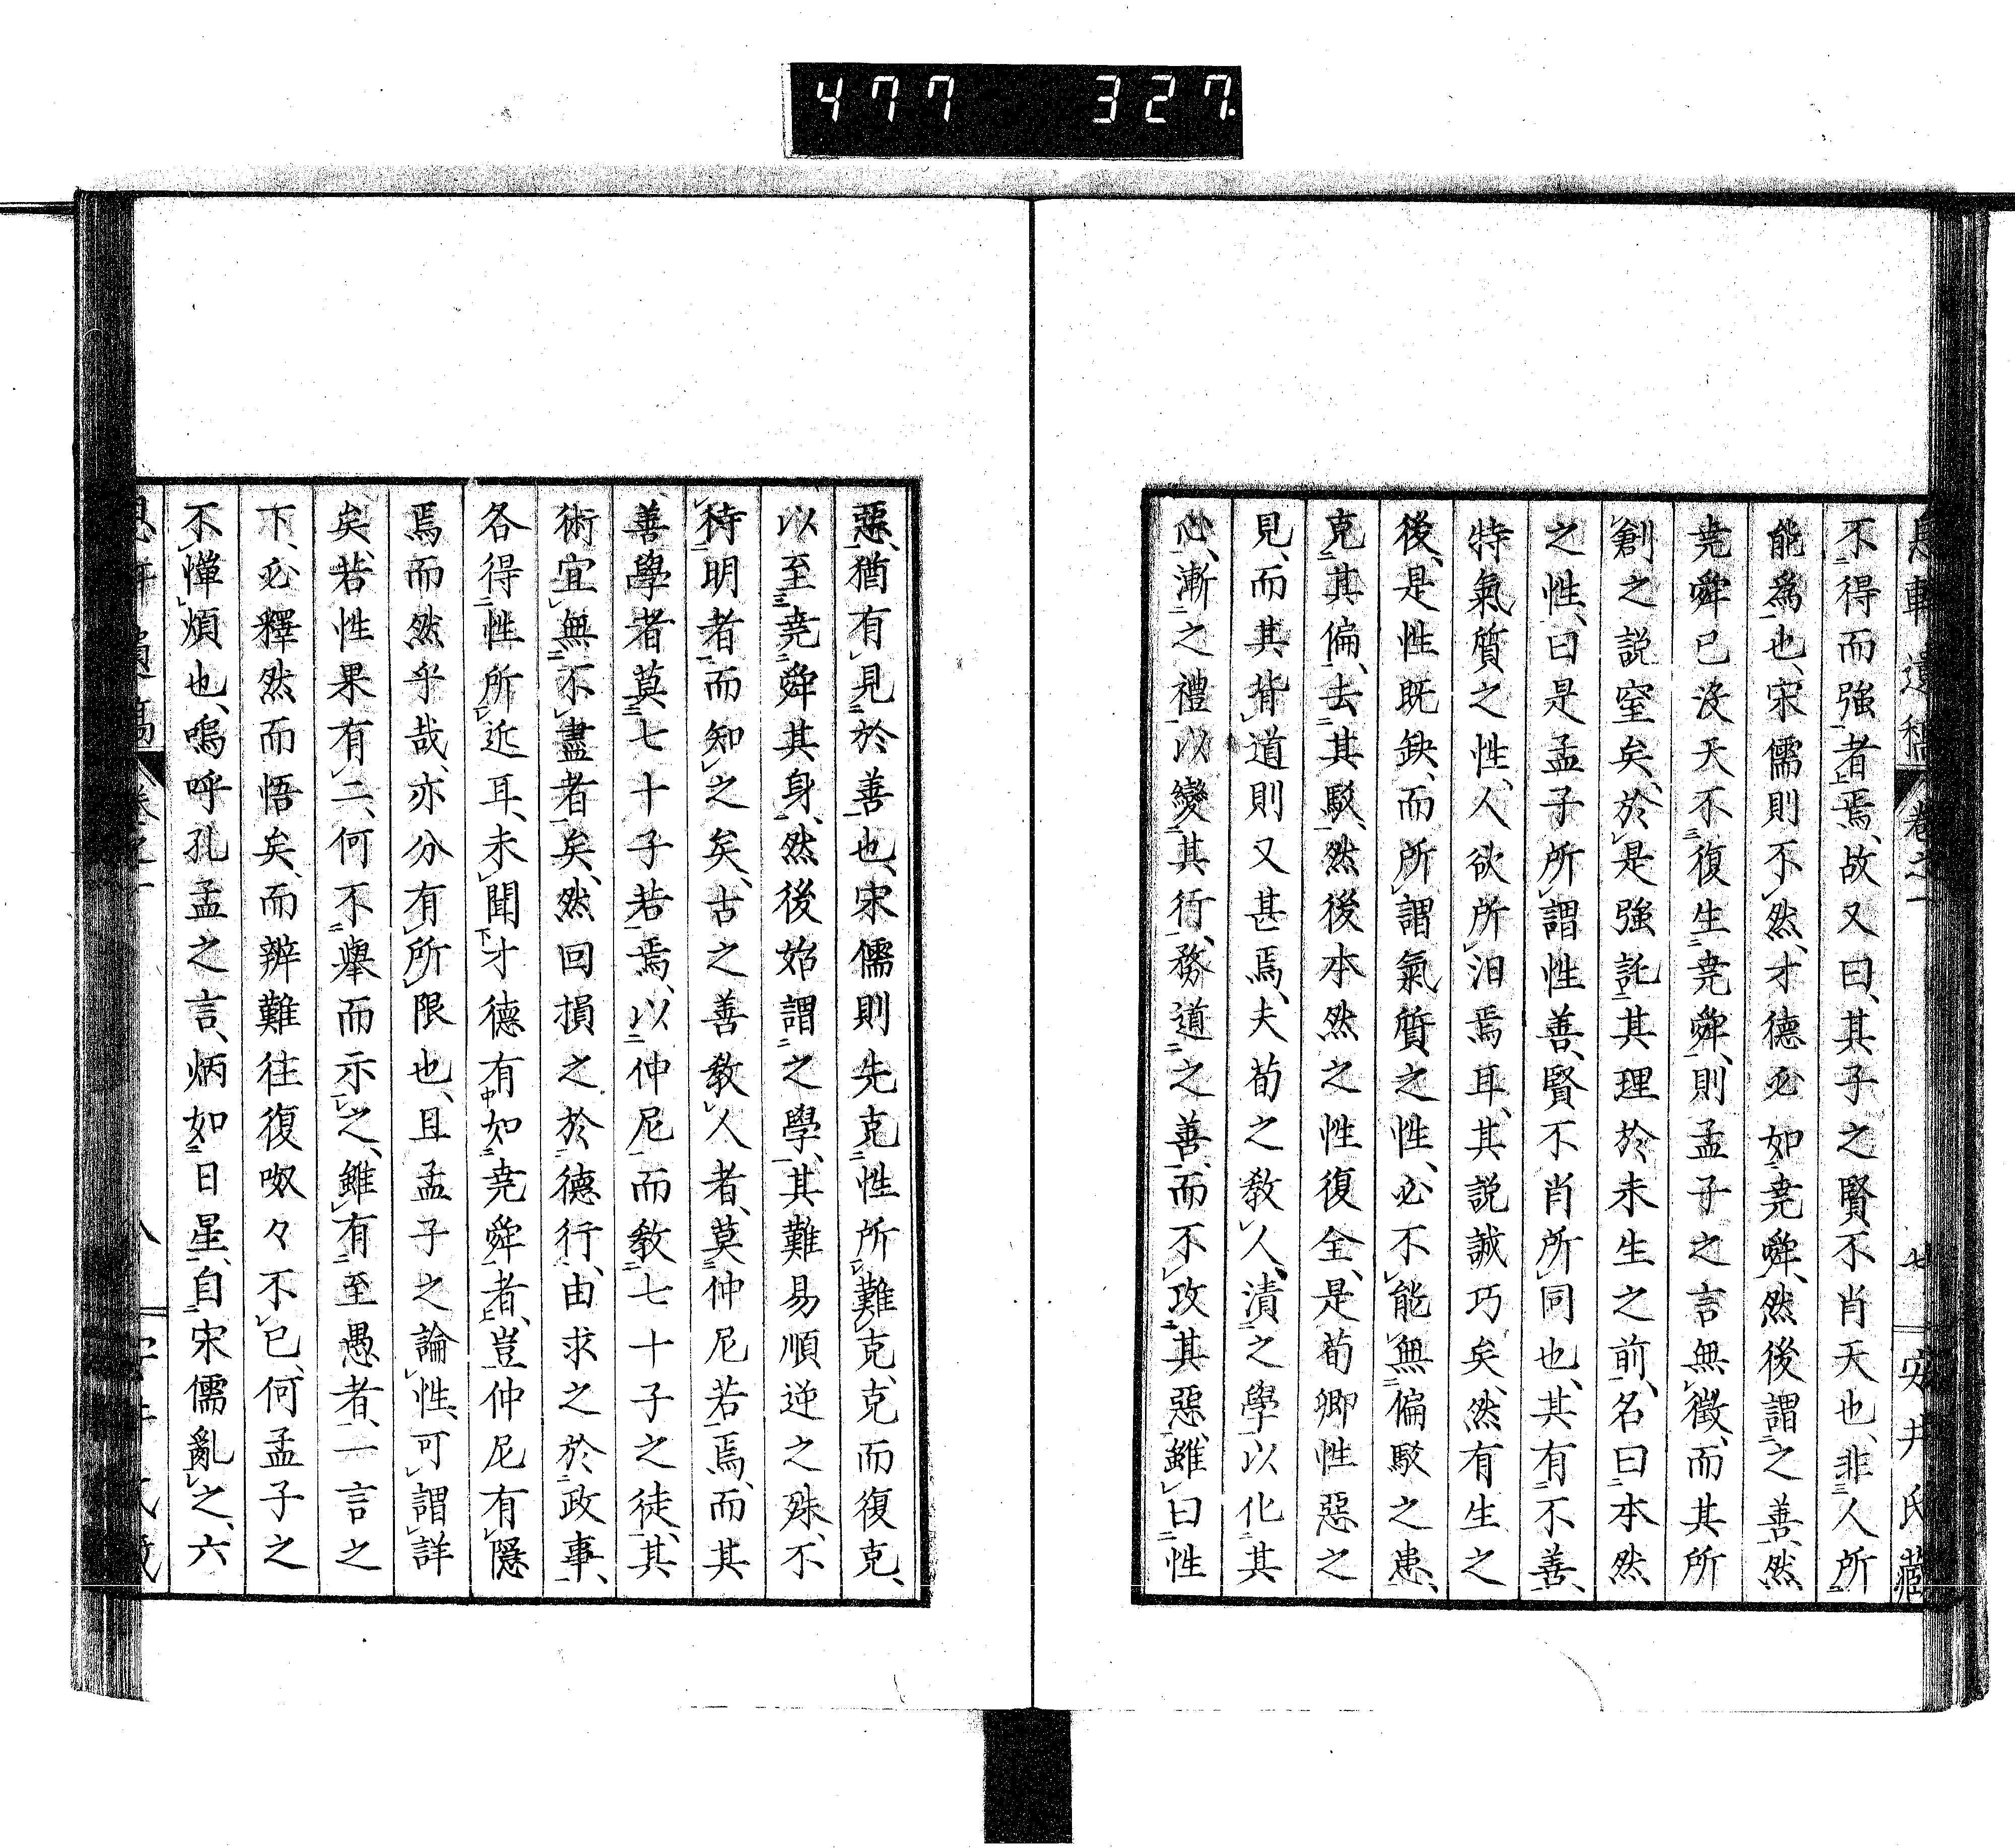 477 327.
息軒遺稿 卷之一 七 安井氏藏
不得而強者焉、故又曰、其子之賢不肖天也、非人所
能爲也、宋儒則不然、才德必如堯舜、然後謂之善、然
堯舜已沒天不復生堯舜、則孟子之言無徵、而其所
創之説窒矣、於是強託其理於未生之前、名曰本然
之性、曰是孟子所謂性善、賢不肖所同也、其有不善、
特氣質之性、人欲所汨焉耳、其説誠巧矣、然有生之
後、是性既缺、而所謂氣質之性、必不能無偏駁之患、
克其偏、去其駁、然後本然之性復全、是荀卿性惡之
見、而其背道則又甚焉、夫荀之教人、漬之學以化其
心、漸之禮以變其行、務道之善、而不攻其惡、雖曰性
惡、猶有見於善也、宋儒則先克性所難克、克而復克、
以至堯舜其身、然後始謂之學、其難易順逆之殊、不
待明者而知之矣、古之善教人者、莫仲尼若焉、而其
善學者莫七十子若焉、以仲尼而教七十子之徒、其
術宜無不盡者矣、然回損之於德行、由求之於政事、
各得性所近耳、未聞才德有如堯舜者、豈仲尼有隱
焉而然乎哉、亦分有所限也、且孟子之論性、可謂詳
矣、若性果有二、何不擧而示之、雖有至愚者、一言之
下、必釋然而悟矣、而辨難往復呶々不已、何孟子之
不憚煩也、嗚呼孔孟之言、炳如日星、自宋儒亂之、六
息軒遺稿 卷之一 八 安井氏藏